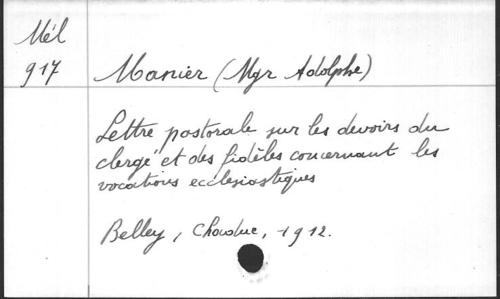 Mél
917
Manier (Mgr Adolphe)
Lettre pastorale sur les devoirs du
clergé et des fidèles concernant les
vocations ecclésiastiques
Belley, Chaduc, 1912.